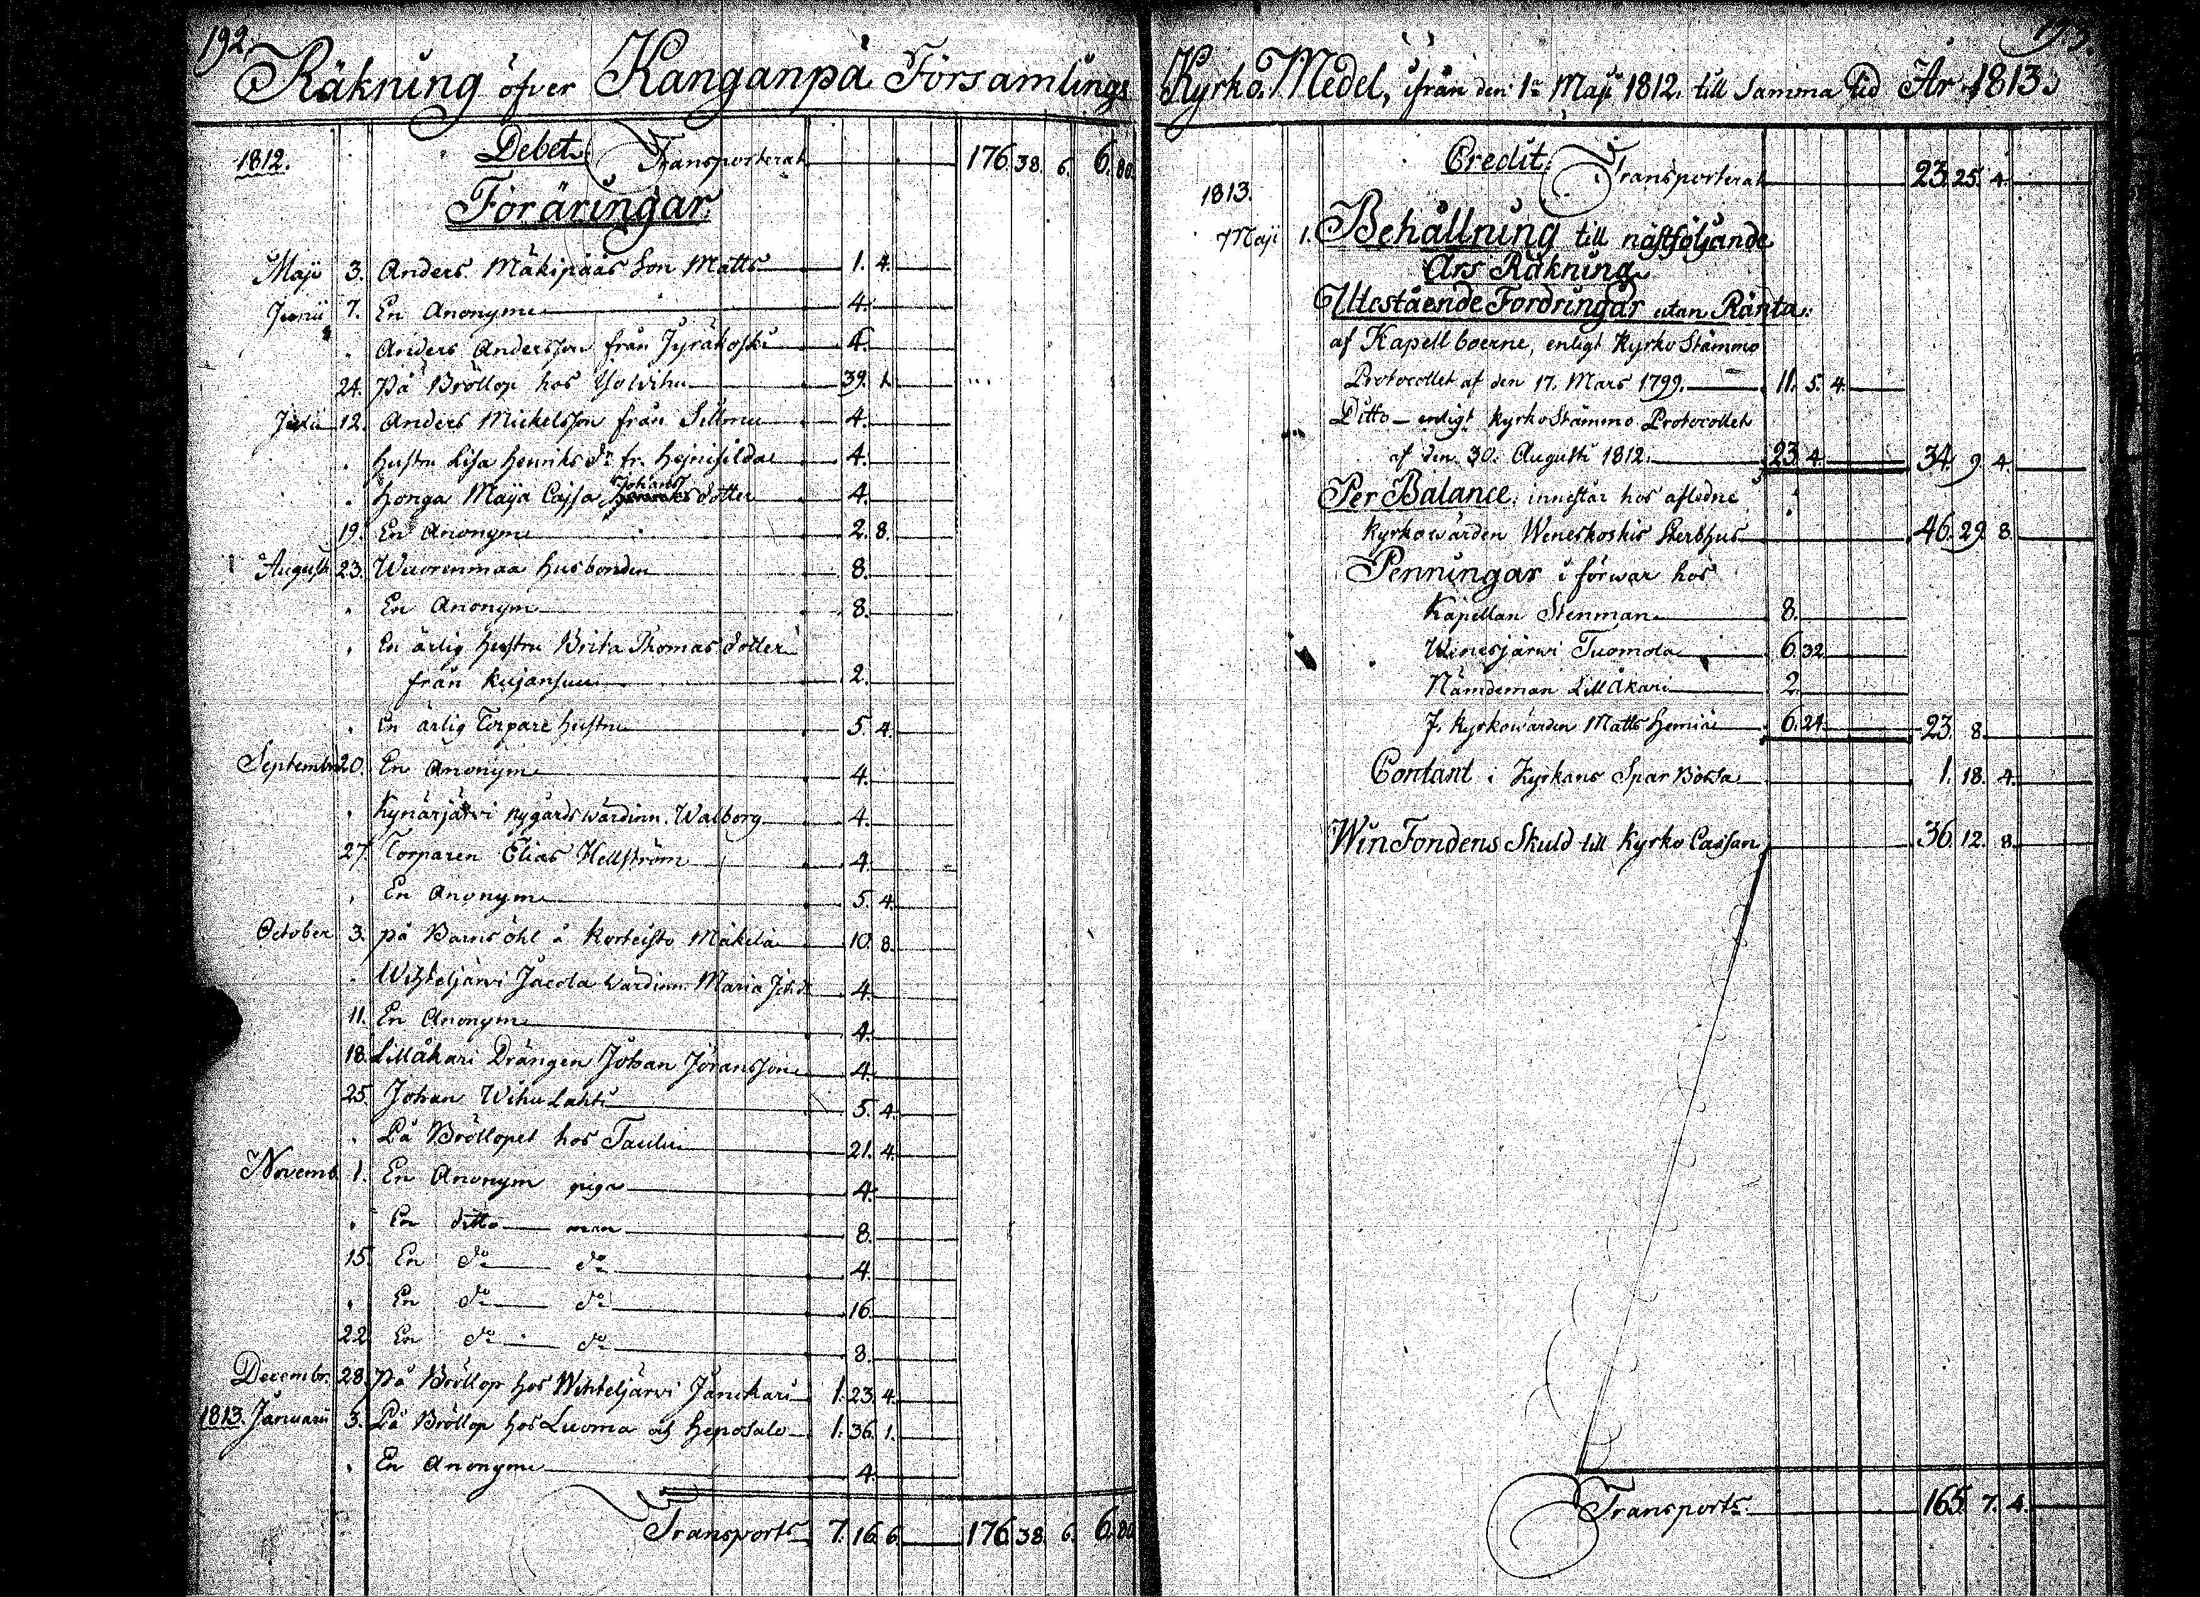 192.
Räkning öfver Kanganpä Församlings
1812. Debet. Transporterat 176. 38. 6. 6. 80.
Föräringar.
Maji 3. Anders Mäkipääs Son Matts 1. 4.
Junii 7. En Anonyme 4.
. Anders Andersson från Jyräkoski 4.
24. På Bröllop hos 39. 1.
Julii 12. Anders Mickelsson från Sillmu 4.
. Hustru Lisa Henriks dr fr. 4.
. Honga Maija Cajsa Johans dotter 4.
19. En Anonyme 2. 8.
Augusti 23. Wuorenmaa Husbonden 8.
. En Anonym 8.
. En ärlig hustru Brita Thomas dotter
från Kujansuu 2.
. En ärlig Torpare hustru 5. 4.
Septembr. 20. En Anonyme 4.
. Kynärjärvi nygårds wärdinn. Walborg 4.
27. Torparen Elias Hellström 4.
. En Anonyme 5. 4.
October 3. på Barns öhl å Korteisto Mäkelä 10. 8.
. Wihteljärvi Jacola Wärdinn. Maria 4.
11. En Anonyme 4.
18. Lillåkari Drängen Johan Jöransson 4.
25. Johan Wihu Lahti 5. 4.
. På Bröllopet hos Taulu 21. 4.
Novemb. 1. En Anonym piga 4.
. En ditto man 8.
15. En do do 4.
. En do do 16.
22. En do do 8.
Decembr. 28. På Bröllop hos Wihteljärvi Jänickari 1. 23. 4.
1813. Januarii 3. På Bröllop hos Luoma och Heposalo 1. 36. 1.
. En Anonyme 4.
Transports 7. 16. 6. 176. 38. 6. 6. 80.
193.
Kyrko Medel, ifrån den 1a Maji 1812. till samma tid År 1813.
Credit. Transporterat 23. 25. 4.
1813.
Maji 1. Behållning till nästföljande
Års Räkning
Utestående Fordringar utan Ränta:
af Kapellboerne, enligt Kyrko Stämmo
Protocollet af den 17. Mars 1799. 11. 5. 4.
Ditto enligt Kyrko Stämmo Protocollet
af den 30. Augusti 1812. 23. 4. 34. 9. 4.
Per Balance: innestår hos afledne
Kyrkowärden Weneskoskis Sterbhus 46. 29. 8.
Penningar i förwar hos
Kapellan Stenman 8.
Winesjärwi Tuomola 6. 32.
Nämdeman Lillåkari 2.
f. Kyrkowärden Matts 6. 24. 23. 8.
Contant i Kyrkans Spar Bössa 1. 18. 4.
Win Fondens Skuld till Kyrko Cassan 36. 12. 8.
Transports 165. 7. 4.